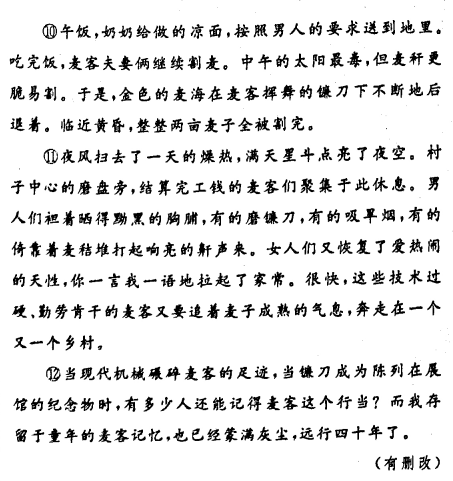 ⑩午饭,奶奶给做的凉面,按照男人的要求送到地里。
吃完饭,麦客夫妻俩继续割麦。中午的太阳最毒,但麦秆更
脆易割。于是,金色的麦海在麦客挥舞的镰刀下不断地后
退着。临近黄昏,整整两亩麦子全被割完。
⑪夜风扫去了一天的燥热,满天星斗点亮了夜空。村
子中心的磨盘旁,结算完工钱的麦客们聚集于此休息。男
人们袒着晒得黝黑的胸脯,有的磨镰刀,有的吸旱烟,有的
倚靠着麦秸堆打起响亮的鼾声来。女人们又恢复了爱热闹
的天性,你一言我一语地拉起了家常。很快,这些技术过
硬、勤劳肯干的麦客又要追着麦子成熟的气息,奔走在一个
又一个乡村。
⑫当现代机械碾碎麦客的足迹,当镰刀成为陈列在展
馆的纪念物时,有多少人还能记得麦客这个行当?而我存
留于童年的麦客记忆,也已经蒙满灰尘,远行四十年了。
(有删改)